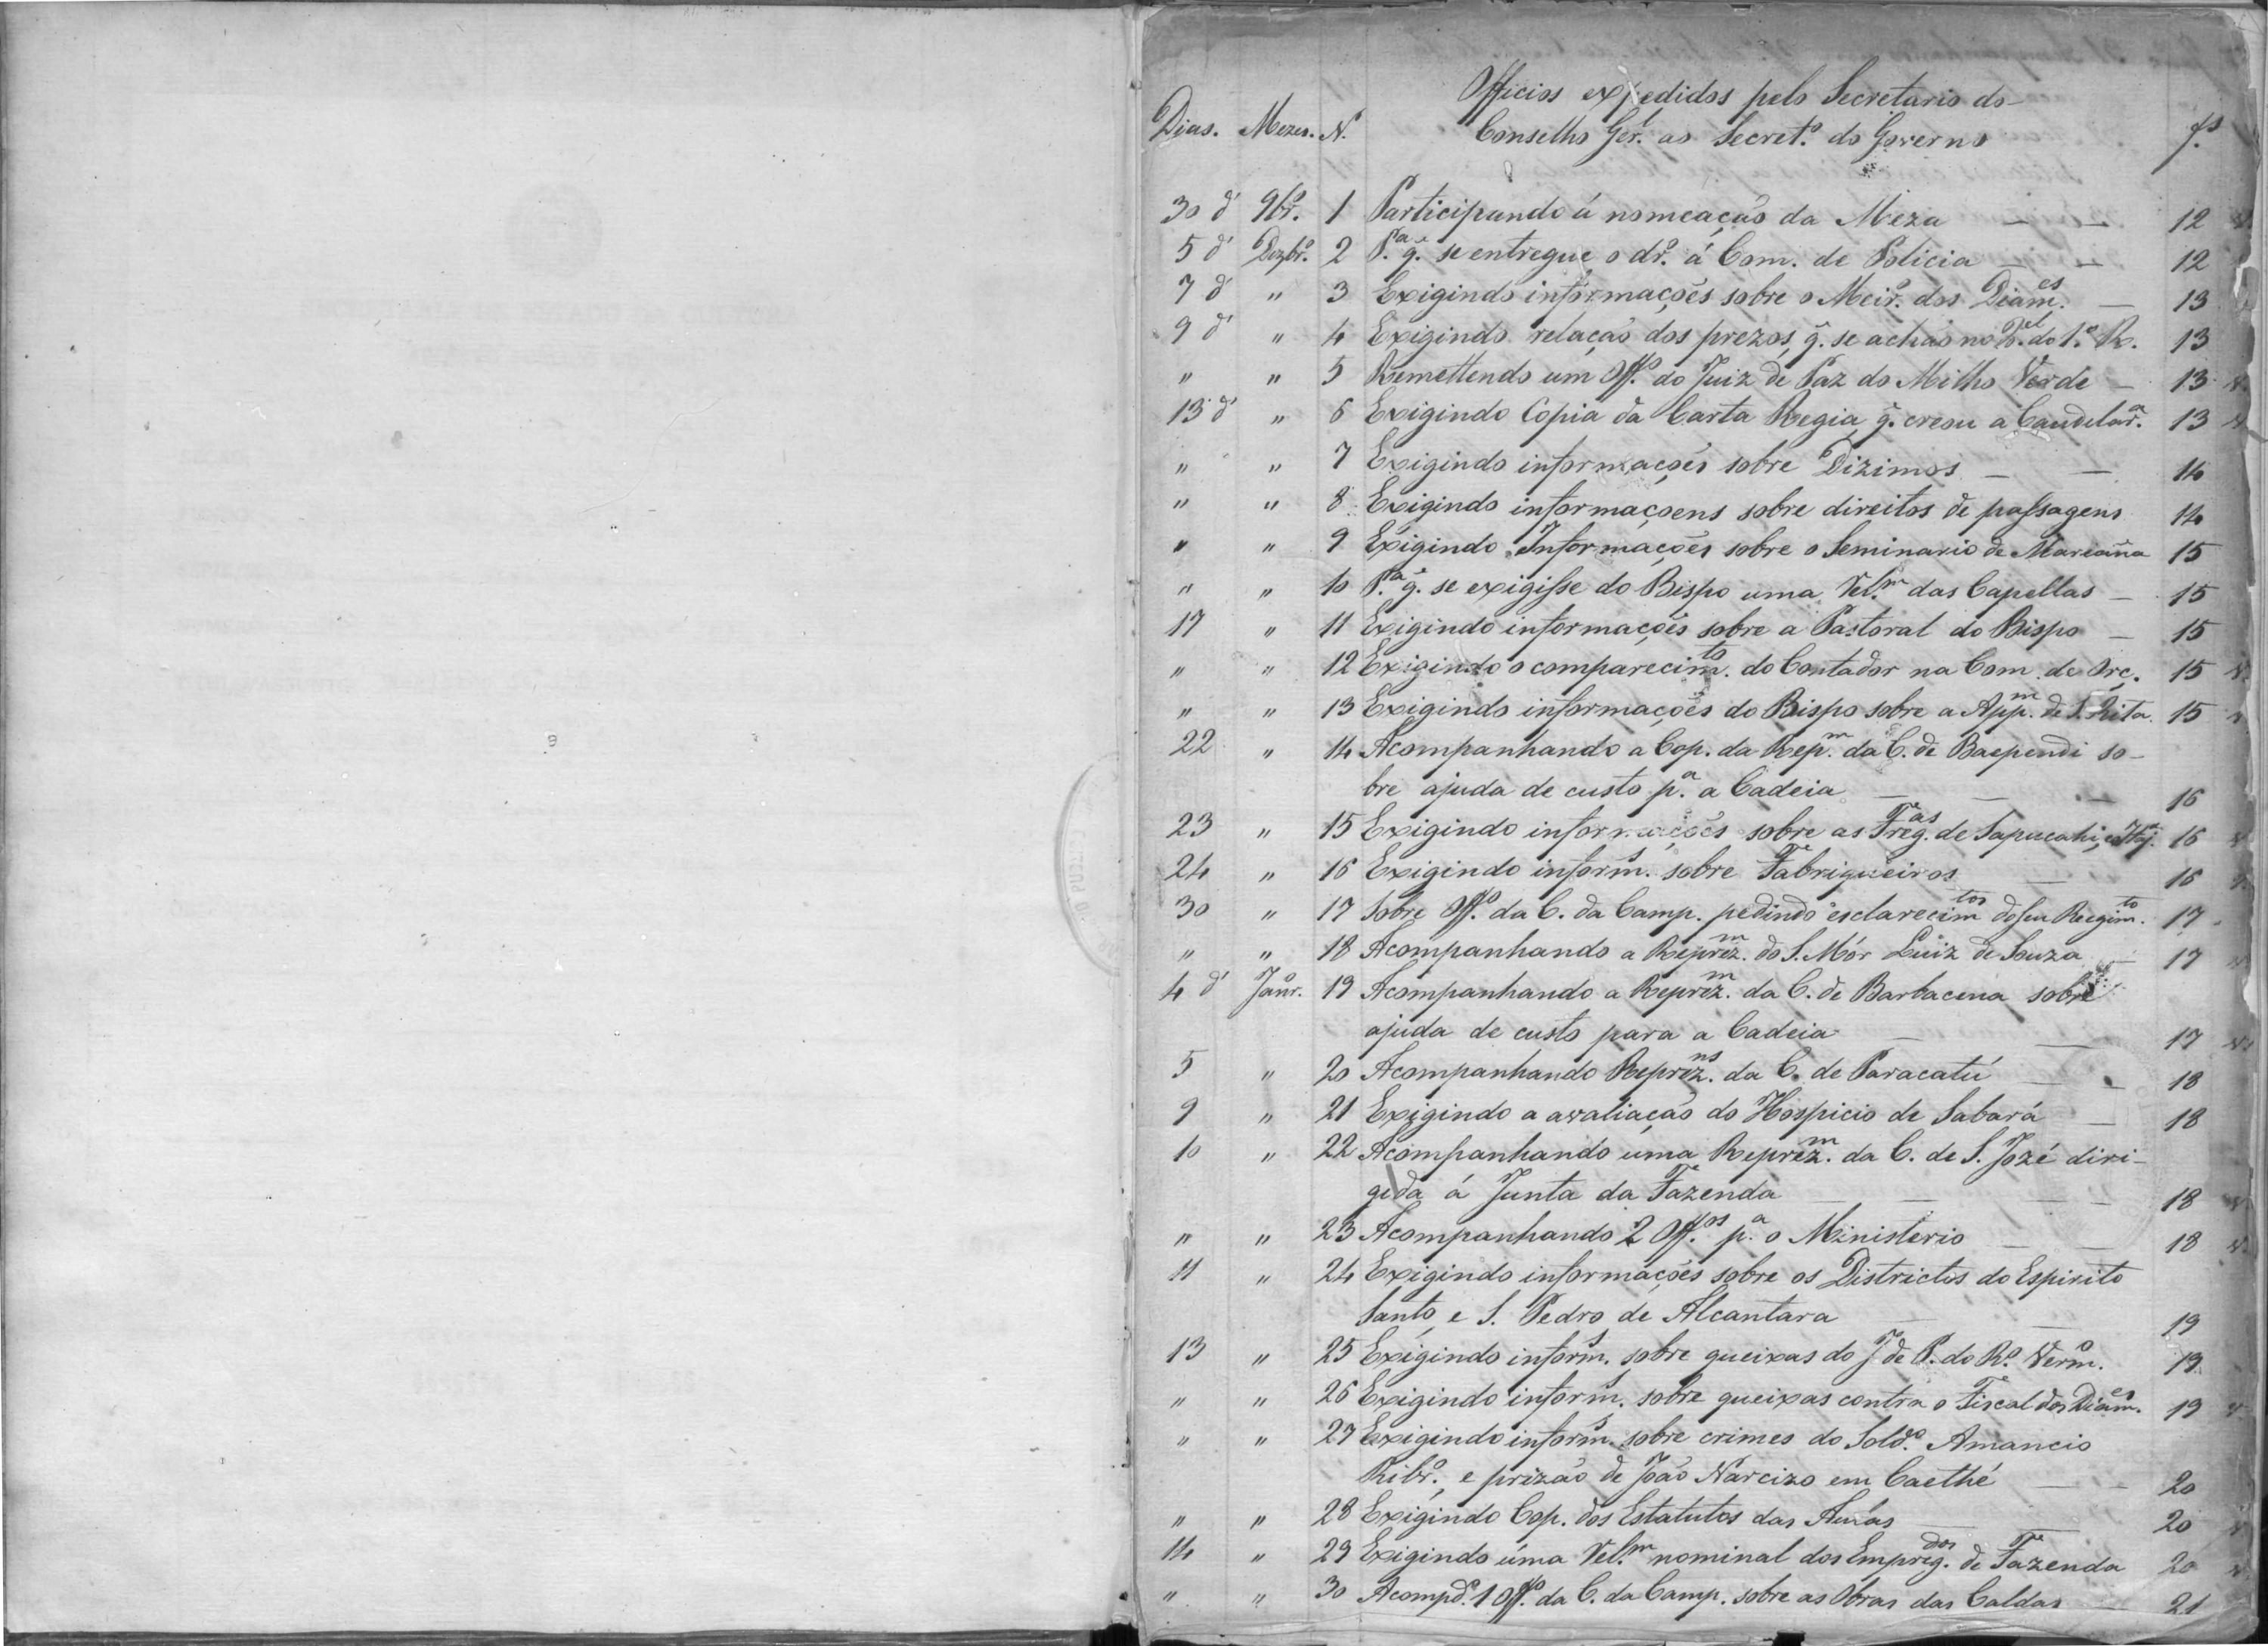 Officios expedidos pelo Secretario do
Dias. Mezes. N. Conselho Ger.l ao Secret.o do Governo f.s
30 d' 9br.o 1 Participando á nomeação da Meza — — 12 v.
5 d' Dezbr.o 2 P.a q. se entregue o dr.o á Com. de Policia — — 12
7 d' " 3 Exigindo informações sobre o Meir.o dos Diam.es — 13
9 d' " 4 Exigindo relação dos prezos, q. se achão no Q.el do 1.o R. 13
" " 5 Remettendo um Off.o do Juiz de Paz do Milho Verde — 13 v.
13 d' " 6 Exigindo Copia da Carta Regia q. creou a Candelar.a 13 v.
" " 7 Exigindo informações sobre Dizimos — — 14
" " 8 Exigindo informaçoens sobre direitos de passagens 14
" " 9 Exigindo Informações sobre o Seminario de Mareañа 15
" " 10 P.a q. se exigisse do Bispo uma Rel.m das Capellas — 15
17 " 11 Exigindo informações sobre a Pastoral do Bispo — 15
" " 12 Exigindo o comparecim.to do Contador na Com. de Orç. 15 v.
" " 13 Exigindo informações do Bispo sobre a App.m de S. Rita 15 v
22 " 14 Acompanhando a Cop. da Rep.m da C. de Baependi so-
bre ajuda de custo p.a a Cadeia — — — 16
23 " 15 Exigindo informações sobre as Freg.as de Sapucahi, e 16 v
24 " 16 Exigindo inform.s sobre Fabriqueiros — 16 v.
30 " 17 Sobre Off.o da C. da Camp. pedindo esclarecim.tos do seu Regim.to 17
" " 18 Acompanhando a Reprez.m do S. Mór Luiz de Souza — 17 v
4 d' Janr.o 19 Acompanhando a Reprez.m da C. de Barbacena sobre
ajuda de custo para a Cadeia — — 17 v.
5 " 20 Acompanhando Reprez.ns da C. de Paracatú — — 18
9 " 21 Exigindo a avaliação do Hospicio de Sabará — 18
10 " 22 Acompanhando uma Reprez.m da C. de S. Jozé diri-
gida á Junta da Fazenda — — — 18 v
" " 23 Acompanhando 2 Off.os p.a o Ministerio — — 18 v.
11 " 24 Exigindo informações sobre os Districtos do Espirito
Santo, e S. Pedro de Alcantara — — 19
13 " 25 Exigindo inform.s sobre queixas do J. de P. do R.o Verm.o 19
" " 26 Exigindo inform.s sobre queixas contra o Fiscal dos Diam.es 19 v
" " 27 Exigindo inform.s sobre crimes do Sold.o Amancio
Ribr.o, e prizão de João Narcizo em Caethé — — 20
" " 28 Exigindo Cop. dos Estatutos das — — 20 v
14 " 29 Exigindo uma Rel.m nominal dos Empreg.dos de Fazenda 20 v
" " 30 Acompd.o 1 Off.o da C. da Camp. sobre as Obras das Caldas — 21